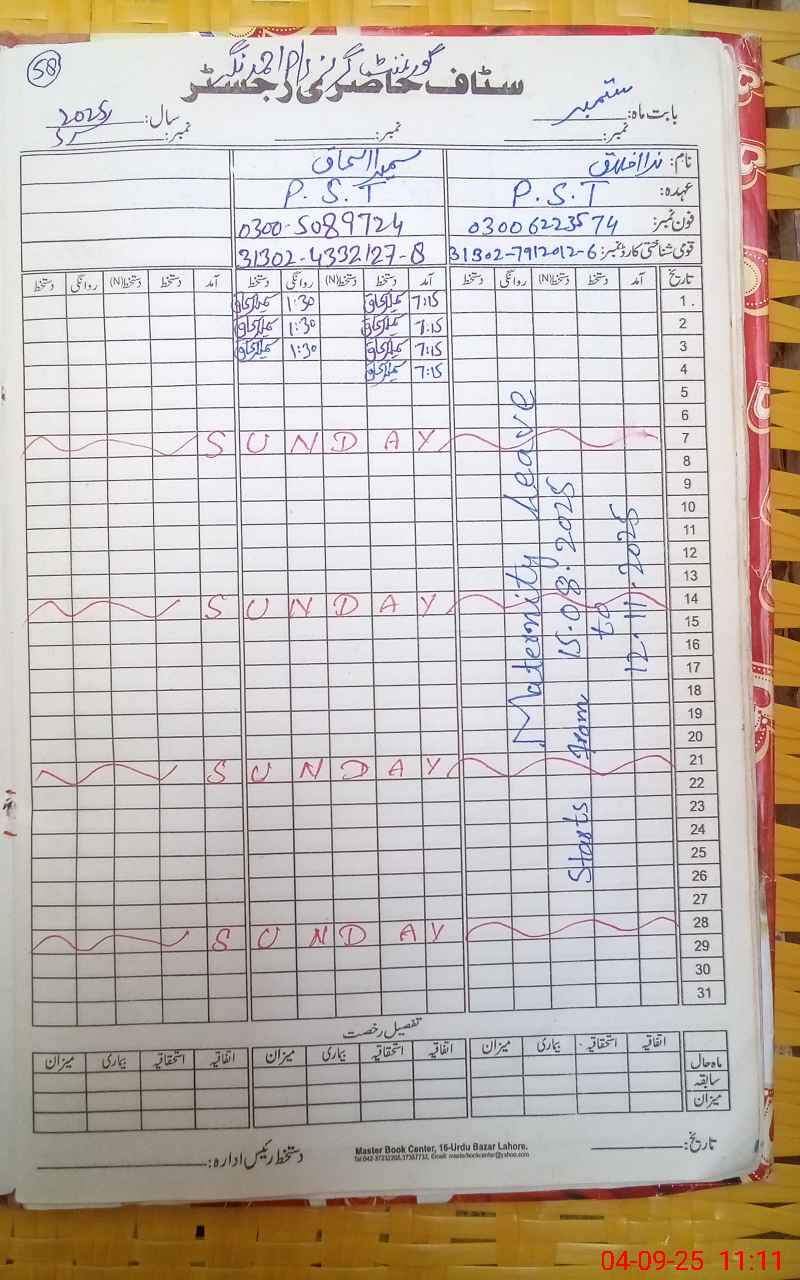 58
گورنمنٹ گرلز P/S احمد نگر
سٹاف حاضری رجسٹر
بابت ماہ: ستمبر سال: 2025
نمبر: نمبر: نمبر:
نام: ندا اخلاق سمیرا اسحاق
عہدہ: P.S.T P.S.T
فون نمبر: 03006223574 0300-5089724
قومی شناختی کارڈ نمبر: 31302-7912012-6 31302-4332127-8
تاریخ آمد دستخط دستخط(N) روانگی دستخط آمد دستخط دستخط(N) روانگی دستخط آمد دستخط دستخط(N) روانگی دستخط
1. 7:15 1:30
2 7:15 1:30
3 7:15 1:30
4 7:15
5
6
7 SUNDAY
8
9
10
11
12
13
14 SUNDAY
15
16
17
18
19
20
21 SUNDAY
22
23
24
25
26
27
28 SUNDAY
29
30
31
Maternity Leave
Starts from 15.08.2025
to
12.11.2025
تفصیل رخصت
اتفاقیہ استحقاقیہ بیماری میزان اتفاقیہ استحقاقیہ بیماری میزان اتفاقیہ استحقاقیہ بیماری میزان
ماہ حال
سابقہ
میزان
تاریخ: دستخط رئیس ادارہ:
Master Book Center, 16-Urdu Bazar Lahore.
04-09-25 11:11